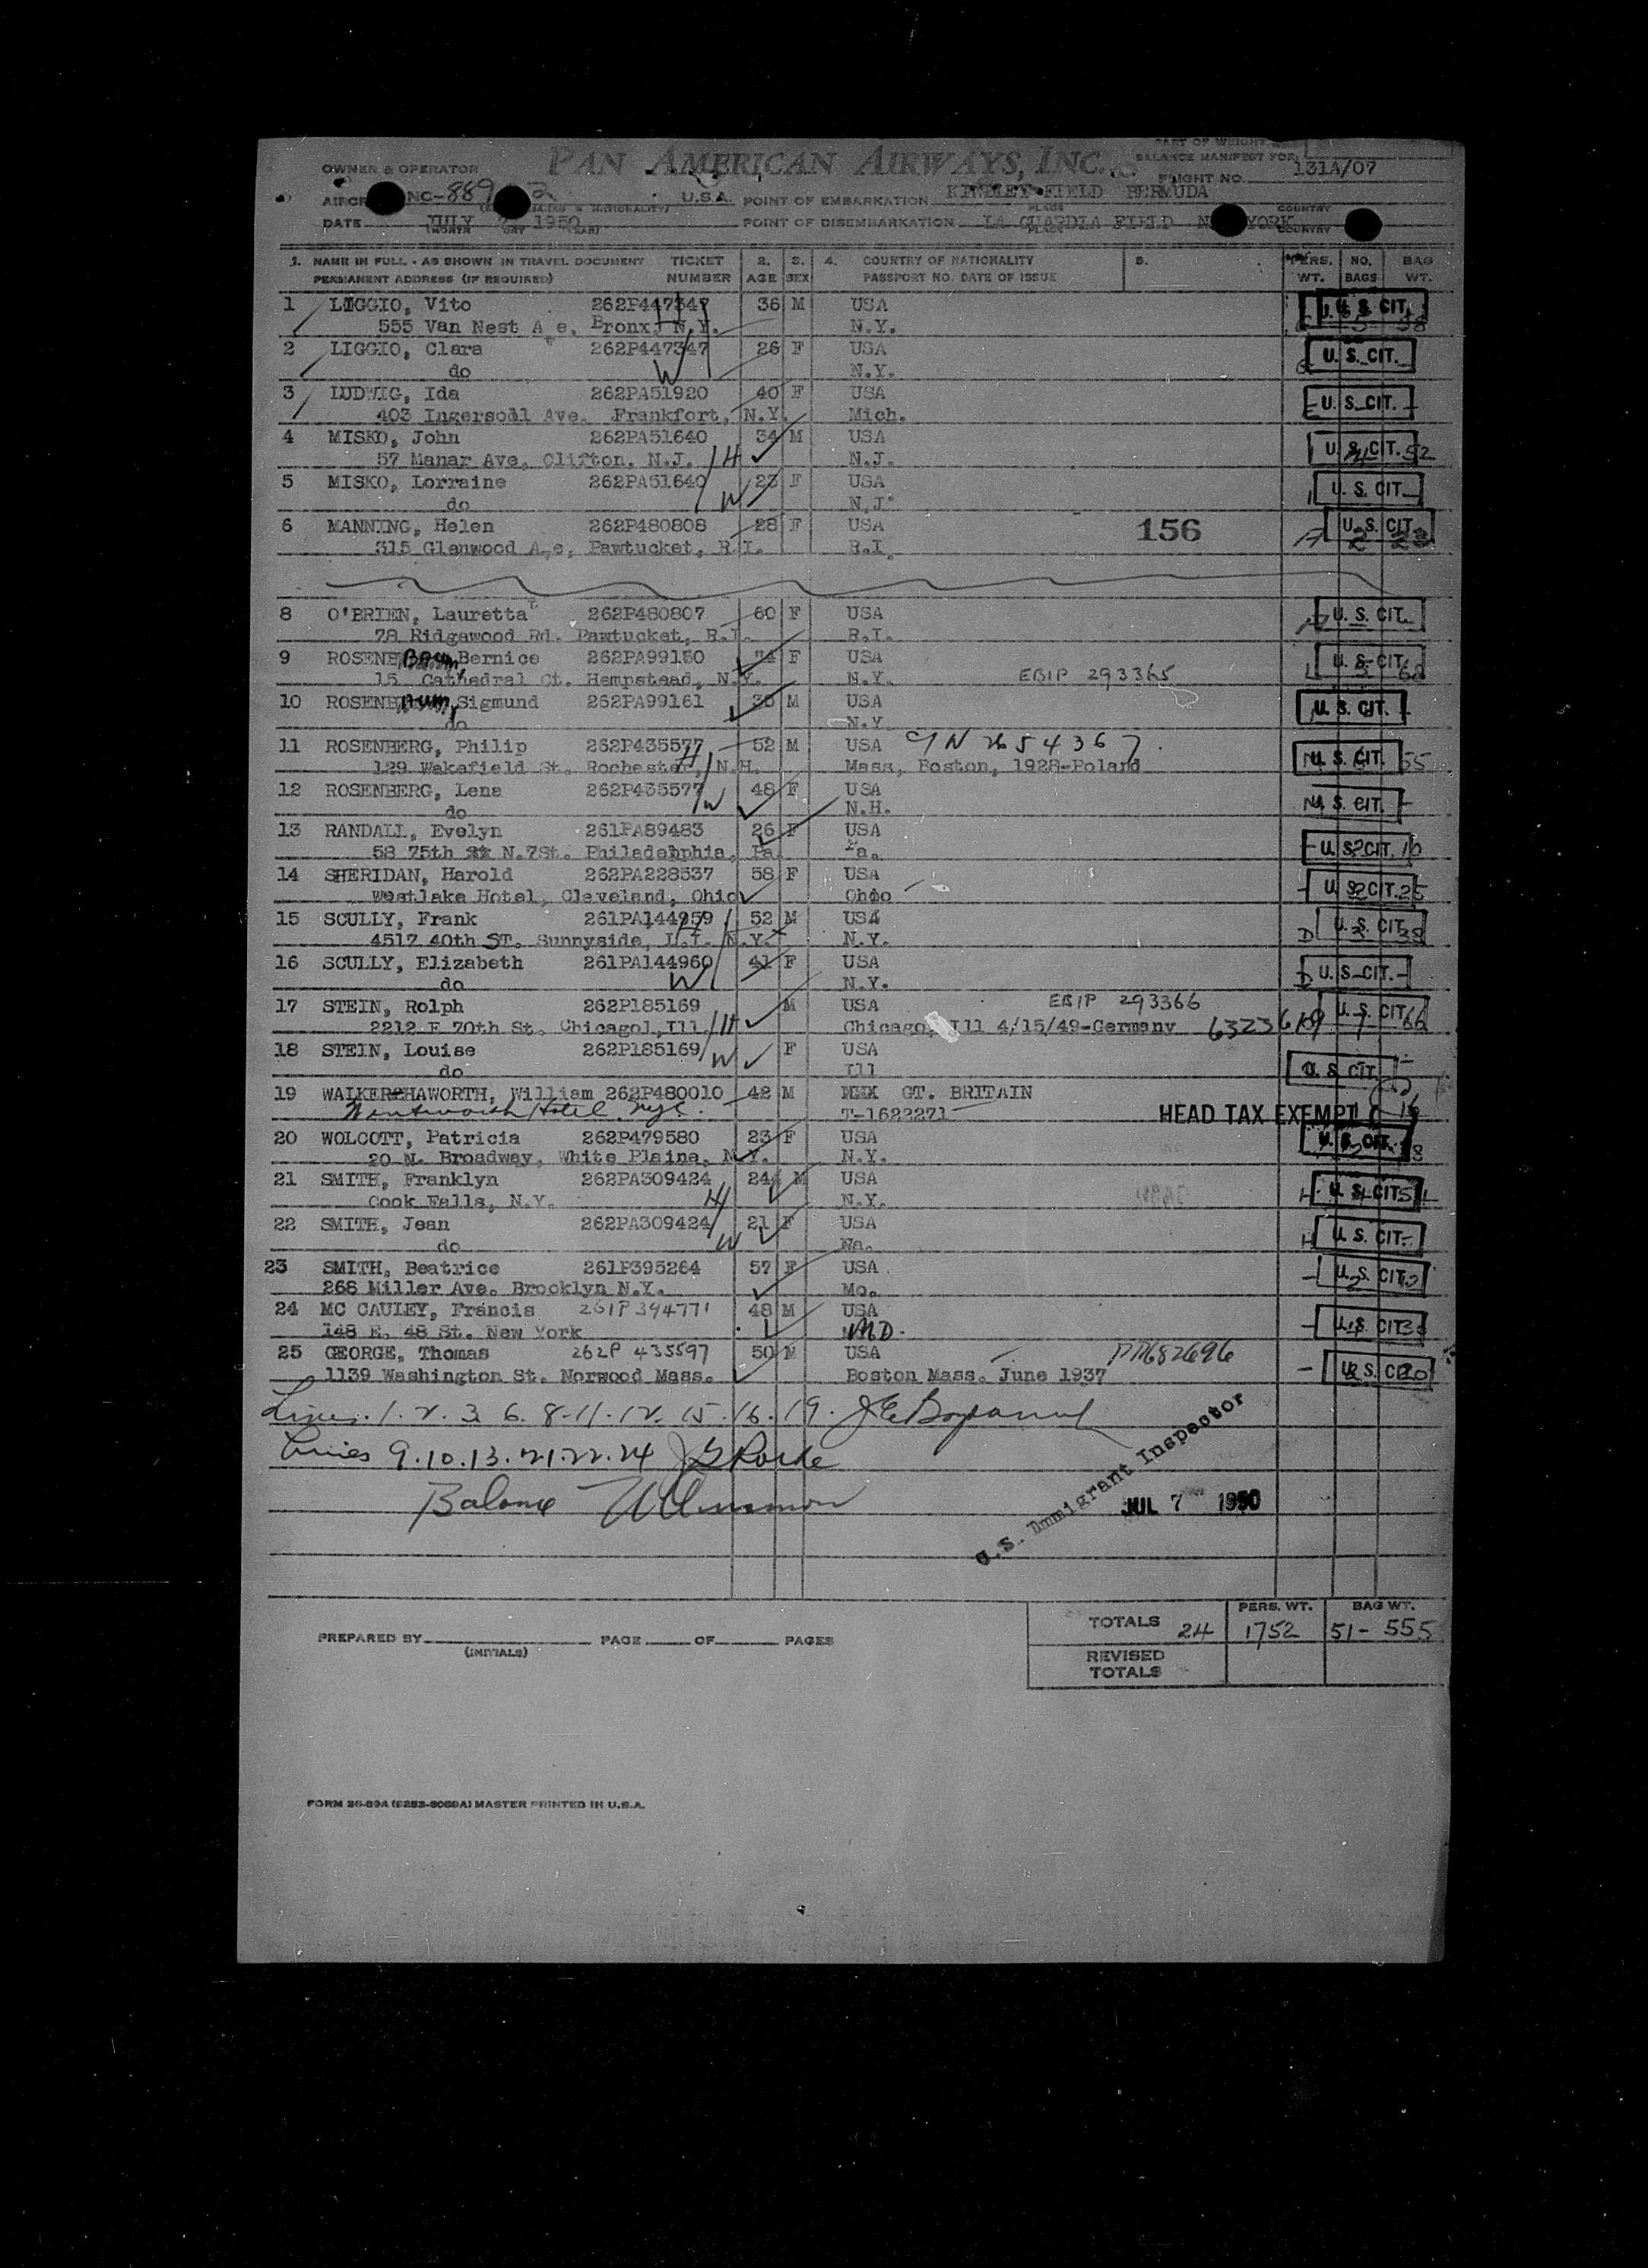 PART OF WEIGHT &
PAN AMERICAN AIRWAYS, INC. BALANCE MANIFEST FOR
OWNER & OPERATOR FLIGHT NO. 131A/07
NC-889 U.S.A. POINT OF EMBARKATION KINDLEY FIELD BERMUDA
PLACE COUNTRY
DATE JULY 1950 POINT OF DISEMBARKATION LA GUARDIA FIELD N YORK
(MONTH DAY YEAR) PLACE COUNTRY
1. NAME IN FULL - AS SHOWN IN TRAVEL DOCUMENT TICKET 2. 3. 4. COUNTRY OF NATIONALITY 5. PERS. NO. BAG
PERMANENT ADDRESS (IF REQUIRED) NUMBER AGE SEX PASSPORT NO. DATE OF ISSUE WT. BAGS WT.
1 LIGGIO, Vito 262P447347 36 M USA U. S. CIT.
555 Van Nest A e, Bronx, N.Y. H N.Y.
2 LIGGIO, Clara 262P447347 26 F USA U. S. CIT.
do W N.Y.
3 LUDWIG, Ida 262PA51920 40 F USA U. S. CIT.
403 Ingersoll Ave. Frankfort, N.Y. Mich.
4 MISKO, John 262PA51640 34 M USA U. S. CIT. 52
57 Manar Ave, Clifton, N.J. H N.J.
5 MISKO, Lorraine 262PA51640 23 F USA U. S. CIT.
do W N.J.
6 MANNING, Helen 262P480808 28 F USA 156 U. S. CIT.
315 Glenwood A e, Pawtucket, R.I. R.I. A 2 23
8 O'BRIEN, Lauretta T. 262P480807 60 F USA U. S. CIT.
78 Ridgewood Rd. Pawtucket, R.I. R.I.
9 ROSENBaum, Bernice 262PA99160 F USA U. S. CIT.
15 Cathedral Ct. Hempstead, N.Y. N.Y. EBIP 293365
10 ROSENBaum, Sigmund 262PA99161 M USA U. S. CIT.
do N.Y.
11 ROSENBERG, Philip 262P435577 52 M USA CN 2654367. U. S. CIT. 55
129 Wakefield St. Rochester, N.H. H Mass, Boston, 1928-Poland
12 ROSENBERG, Lena 262P435577 48 F USA U. S. CIT.
do W N.H.
13 RANDALL, Evelyn 261PA89483 26 F USA U. S. CIT.
58 75th N.7St. Philadehphia, Pa. Pa.
14 SHERIDAN, Harold 262PA228537 58 F USA U. S. CIT. 25
Westlake Hotel, Cleveland, Ohio Ohio
15 SCULLY, Frank 261PA144959 52 M USA U. S. CIT. 38
4517 40th ST. Sunnyside, L.I. N.Y. H N.Y. D
16 SCULLY, Elizabeth 261PA144960 41 F USA U. S. CIT.
do W N.Y. D
17 STEIN, Rolph 262P185169 M USA EBIP 293366 U. S. CIT. 66
2212 E 70th St. Chicagol, Ill. H Chicago, Ill 4/15/49-Germany 6323619
18 STEIN, Louise 262P185169 W F USA
do Ill U. S. CIT.
19 WALKER-HAWORTH, William 262P480010 42 M GT. BRITAIN
Wentworth Hotel nyc. T-1622271 HEAD TAX EXEMPT 16
20 WOLCOTT, Patricia 262P479580 23 F USA U. S. CIT.
20 N. Broadway, White Plains, N.Y. N.Y.
21 SMITH, Franklyn 262PA309424 24 M USA U. S. CIT.
Cook Falls, N.Y. H N.Y.
22 SMITH, Jean 262PA309424 21 F USA U. S. CIT.
do W
23 SMITH, Beatrice 261P395264 57 F USA U. S. CIT.
268 Miller Ave. Brooklyn N.Y. Mo.
24 MC CAULEY, Francis 261P394771 48 M USA U. S. CIT.
148 E. 48 St. New York MD.
25 GEORGE, Thomas 262P 435597 50 M USA PP682696 U. S. CIT. 20
1139 Washington St. Norwood Mass. Boston Mass. June 1937
Lines. 1. 2. 3. 6. 8. 11. 12. 15. 16. 19.
Lines 9. 10. 13. 21. 22. 24
Balance
U.S. Immigrant Inspector
JUL 7 1950
PERS. WT. BAG WT.
TOTALS 24 1752 51- 555
PREPARED BY PAGE OF PAGES
(INITIALS) REVISED
TOTALS
FORM 36-89A (9283-8089A) MASTER PRINTED IN U.S.A.